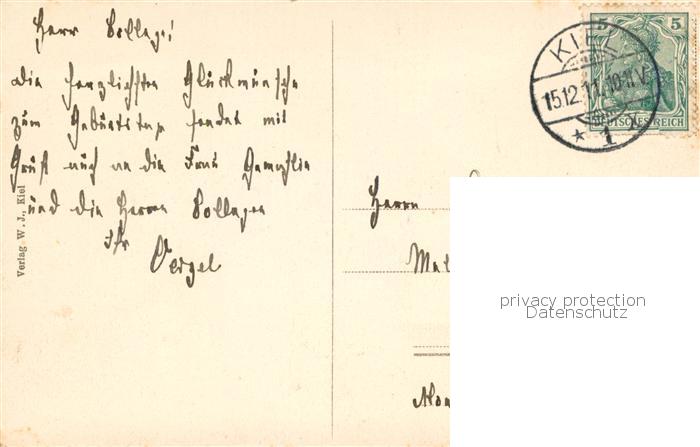 Herr Kollege!
Die herzlichsten Glückwünsche
zum Geburtstage sendet mit
Gruß auch an die Frau Gemahlin
und die Herren Kollegen
Ihr
Vergel
Verlag W. J., Kiel
KIEL
15.12.11. 10-11 V.
* 1
5 5
DEUTSCHES REICH
Herrn
privacy protection
Datenschutz